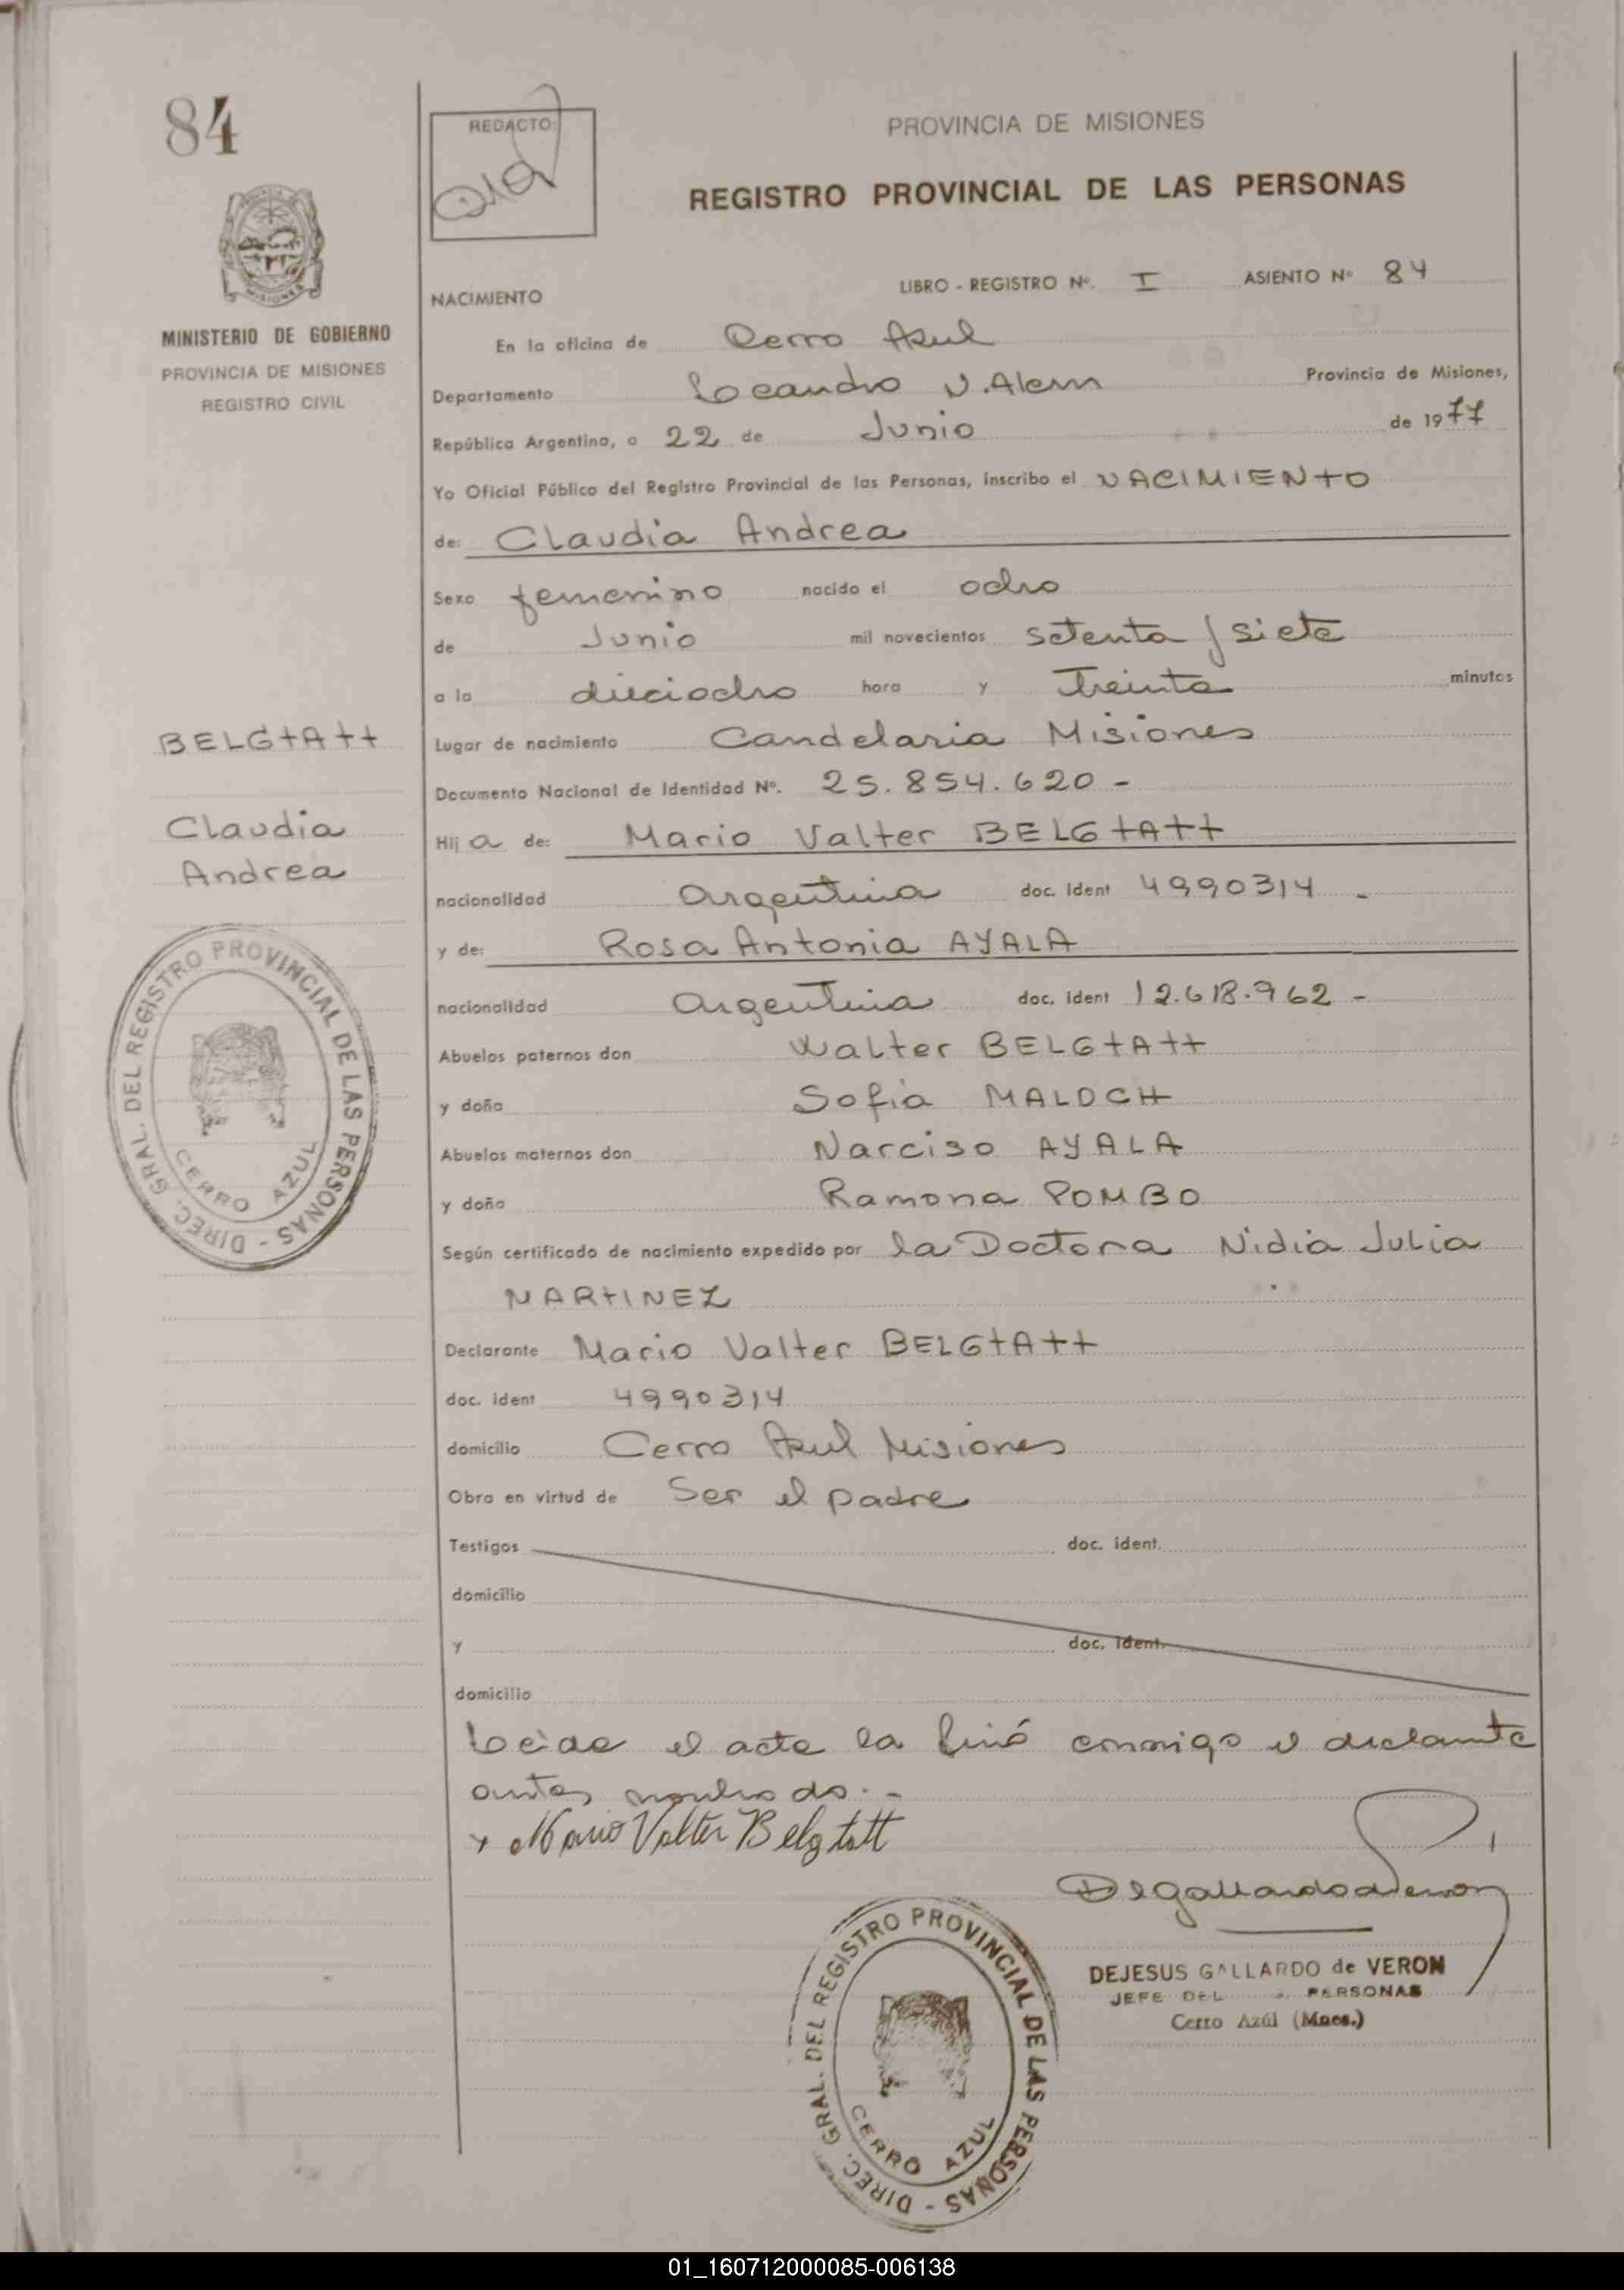 84
REDACTO:
PROVINCIA DE MISIONES
REGISTRO PROVINCIAL DE LAS PERSONAS
MISIONES
MINISTERIO DE GOBIERNO
PROVINCIA DE MISIONES
REGISTRO CIVIL
NACIMIENTO LIBRO - REGISTRO Nº. I ASIENTO Nº 84
En la oficina de Cerro Azul
Departamento Leandro N. Alem Provincia de Misiones,
República Argentina, a 22 de Junio de 1977
Yo Oficial Público del Registro Provincial de las Personas, inscribo el NACIMIENTO
de: Claudia Andrea
Sexo femenino nacido el ocho
de Junio mil novecientos setenta y siete
a la dieciocho hora y Treinta minutos
BELGTATT
Claudia
Andrea
Lugar de nacimiento Candelaria Misiones
Documento Nacional de Identidad Nº. 25.854.620 -
Hij a de: Mario Valter BELGTATT
nacionalidad argentina doc. Ident 4990314 -
y de: Rosa Antonia AYALA
nacionalidad argentina doc. Ident 12.618.962 -
Abuelos paternos don Walter BELGTATT
y doña Sofia MALOCH
Abuelos maternos don Narciso AYALA
y doña Ramona POMBO
Según certificado de nacimiento expedido por la Doctora Nidia Julia
MARTINEZ
Declarante Mario Valter BELGTATT
doc. ident 4990314
domicilio Cerro Azul Misiones
Obra en virtud de Ser el padre
Testigos doc. ident.
domicilio
y doc. ident.
domicilio
Leida el acta la firmó conmigo el declarante
antes nombrado. -
x Mario Valter Belgtatt
DIREC. GRAL. DEL REGISTRO PROVINCIAL DE LAS PERSONAS -
CERRO AZUL
DIREC. GRAL. DEL REGISTRO PROVINCIAL DE LAS PERSONAS -
CERRO AZUL
DEJESUS GALLARDO de VERON
JEFE DEL PERSONAS
Cerro Azúl (Mnes.)
01_160712000085-006138